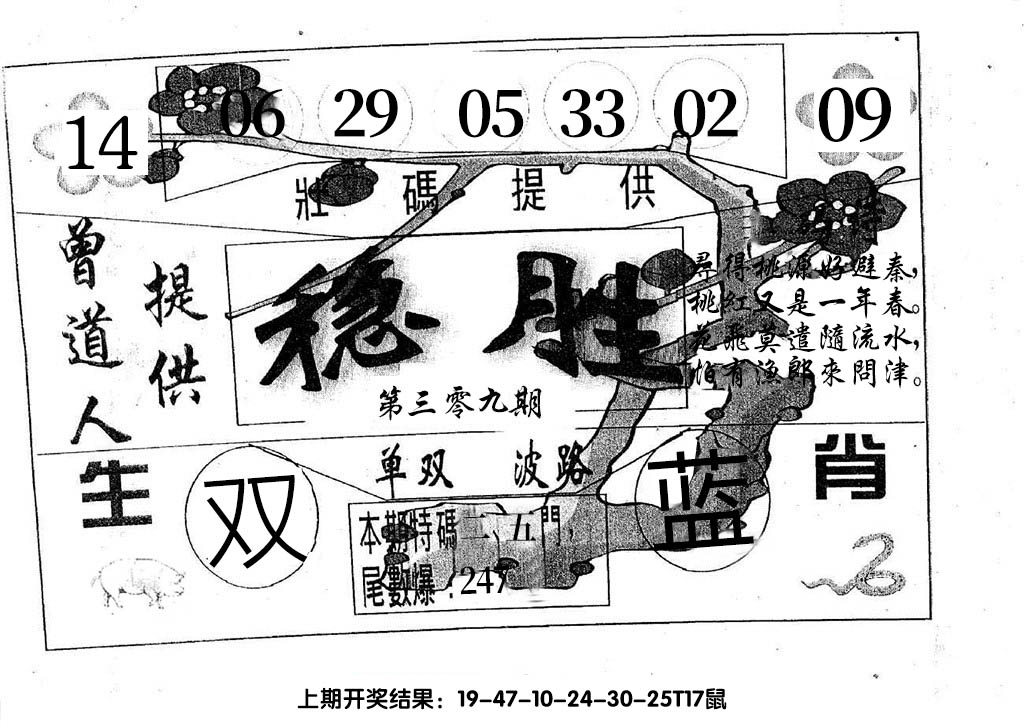 14 06 29 05 33 02 09
壯碼提供
特
曾道人
提供
稳胜
第三零九期
尋得桃源好避秦，
桃紅又是一年春。
花飛莫遣隨流水，
怕有漁郎來問津。
生肖
单双 波路
双
蓝
本期特碼二、五門，
尾數爆：247
上期开奖结果：19-47-10-24-30-25T17鼠